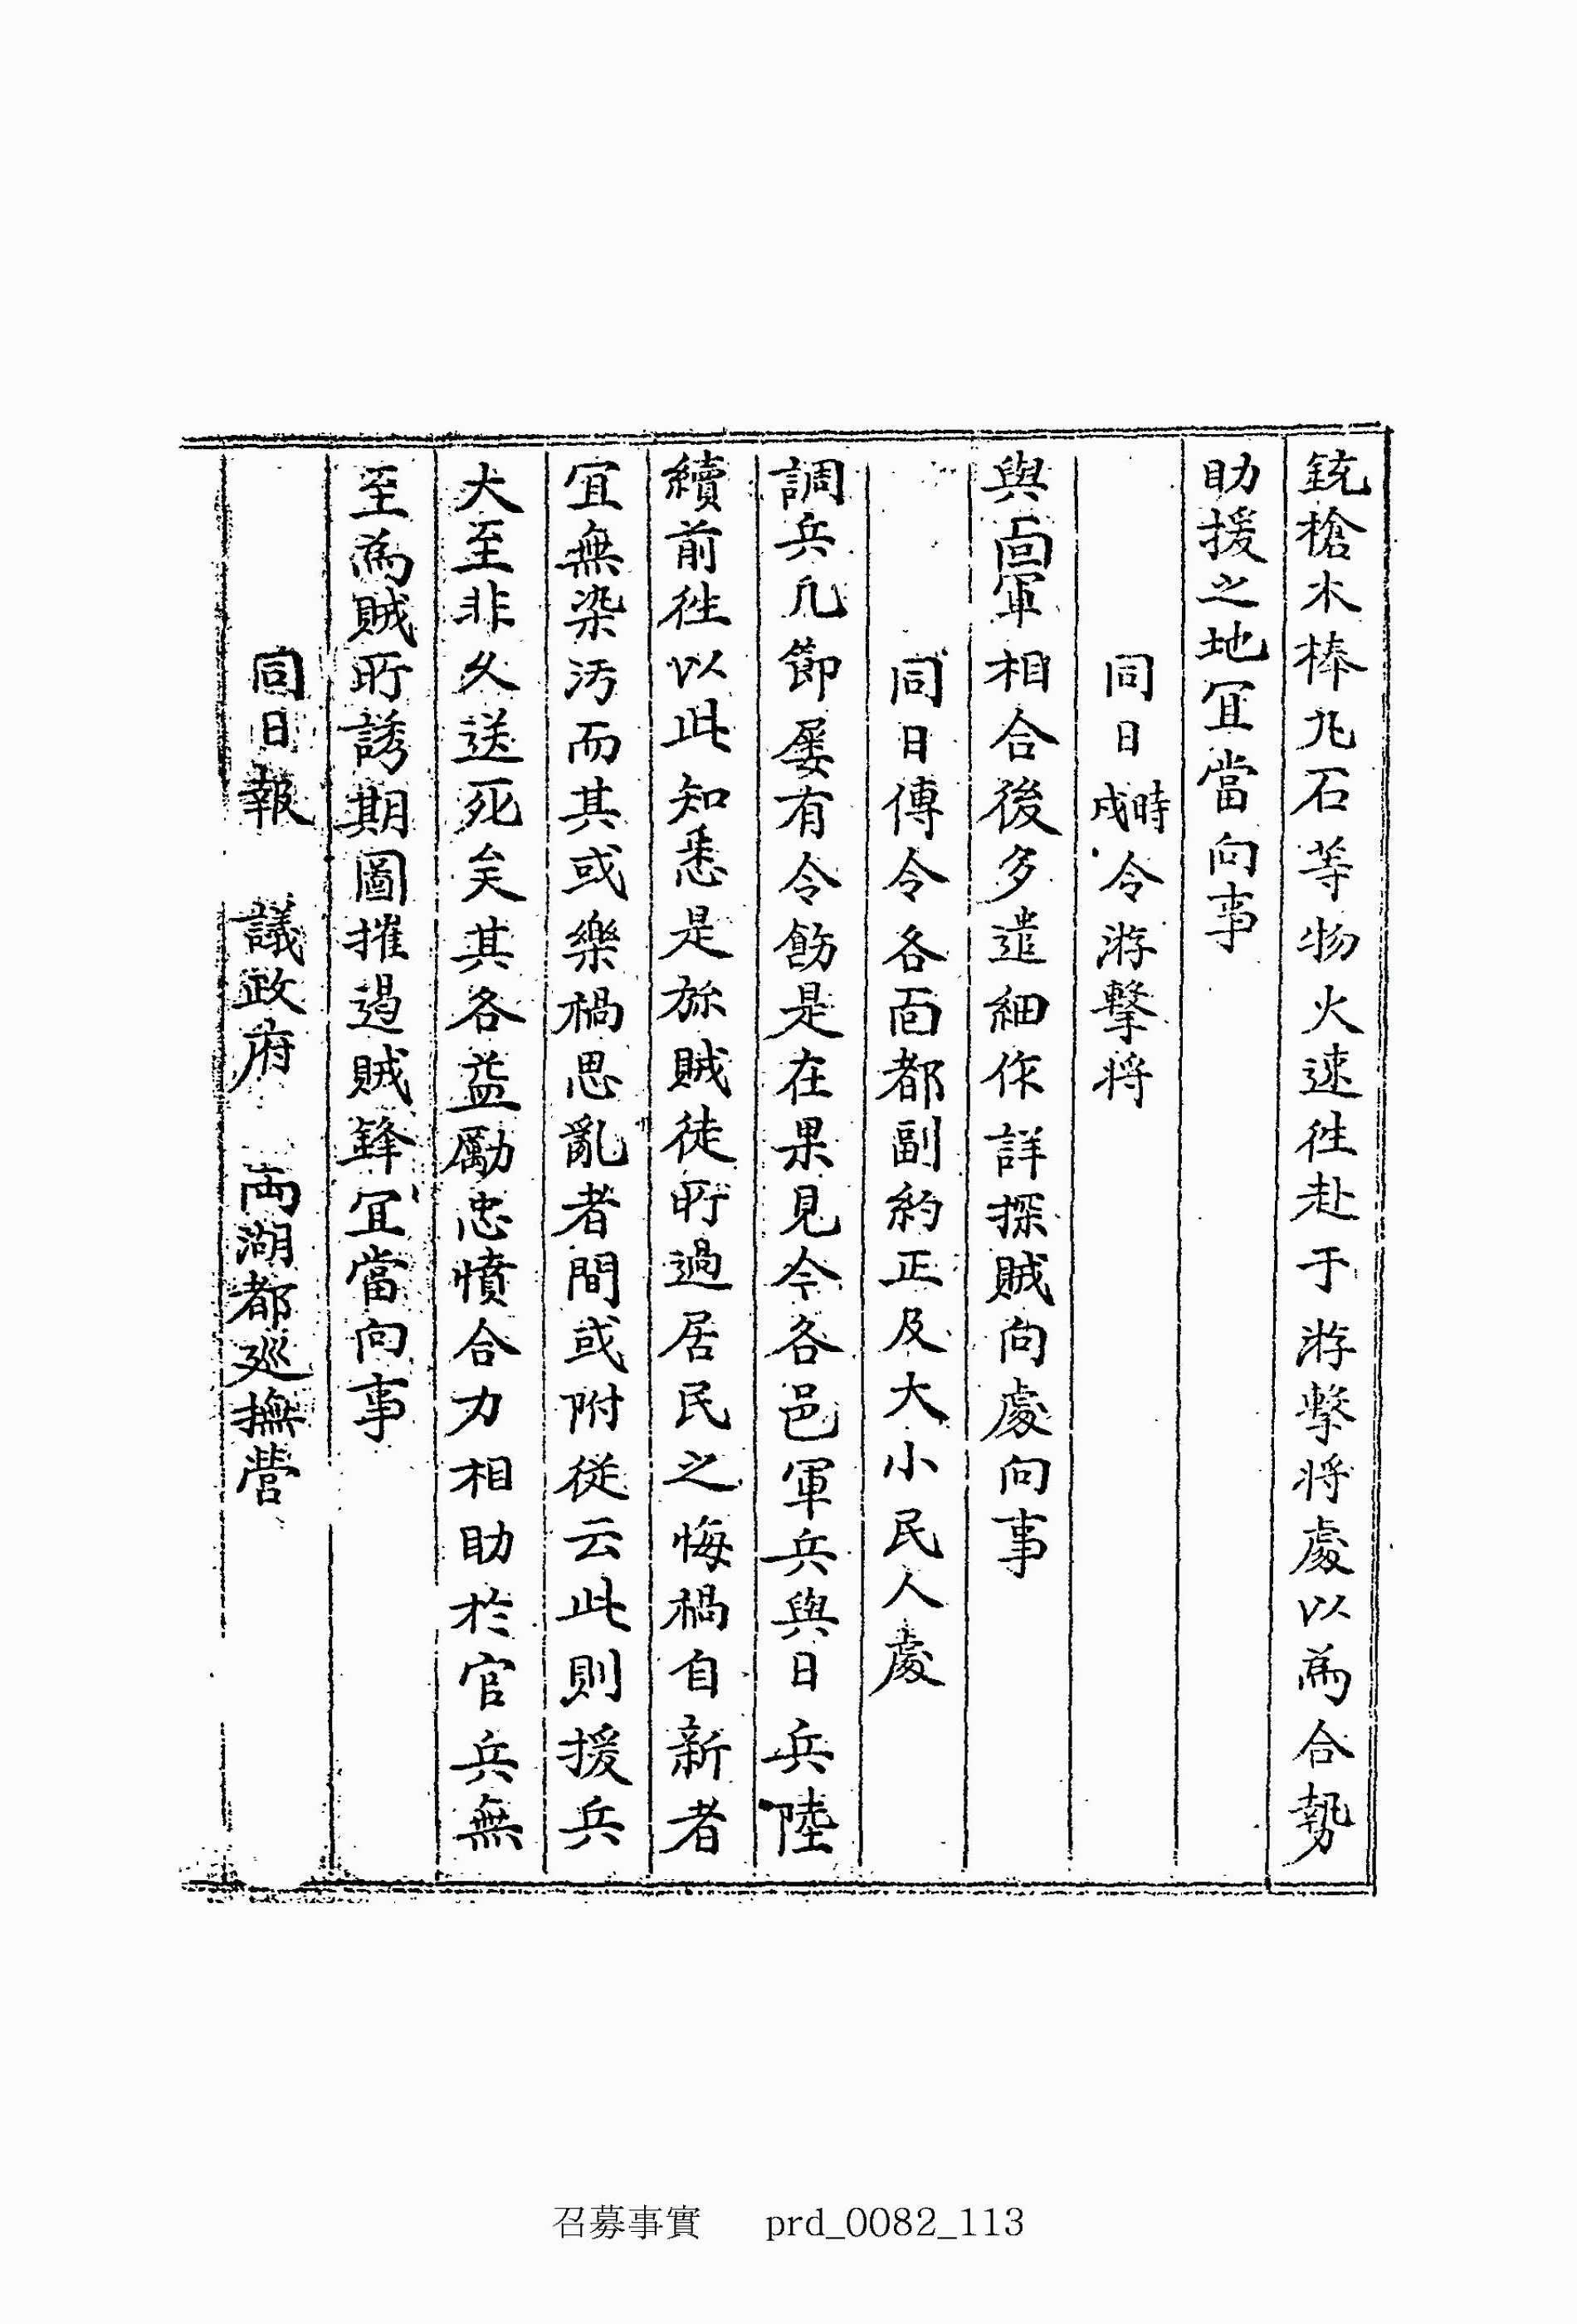 銃槍木棒丸石等物火速徃赴于游擊将處以爲合勢
助援之地冝當向事
同日戌時令游擊将
與面軍相合後多遣細作詳探賊向處向事
同日傳令各面都副約正及大小民人處
調兵凢節屡有令飭是在果見今各邑軍兵與日兵陸
續前徃以此知悉是旀賊徒所過居民之悔禍自新者
冝無染汚而其或樂禍思亂者間或附從云此則援兵
大至非久送死矣其各益勵忠憤合力相助於官兵無
至爲賊所誘期圖摧遏賊鋒冝當向事
同日報 議政府 両湖都廵撫營
召募事實 prd_0082_113